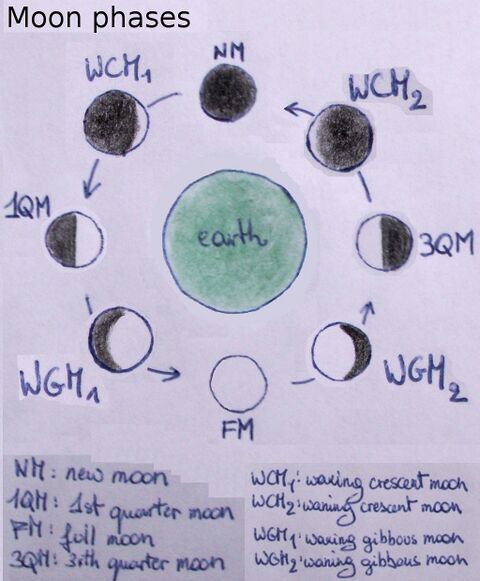 Moon phases
NM
WCM₁
WCM₂
1QM
earth
3QM
WGM₁
WGM₂
FM
NM: new moon
1QM: 1st quarter moon
FM: foil moon
3QM: 3rth quarter moon
WCM₁: waxing crescent moon
WCM₂: waning crescent moon
WGM₁: waxing gibbous moon
WGM₂: waning gibbous moon